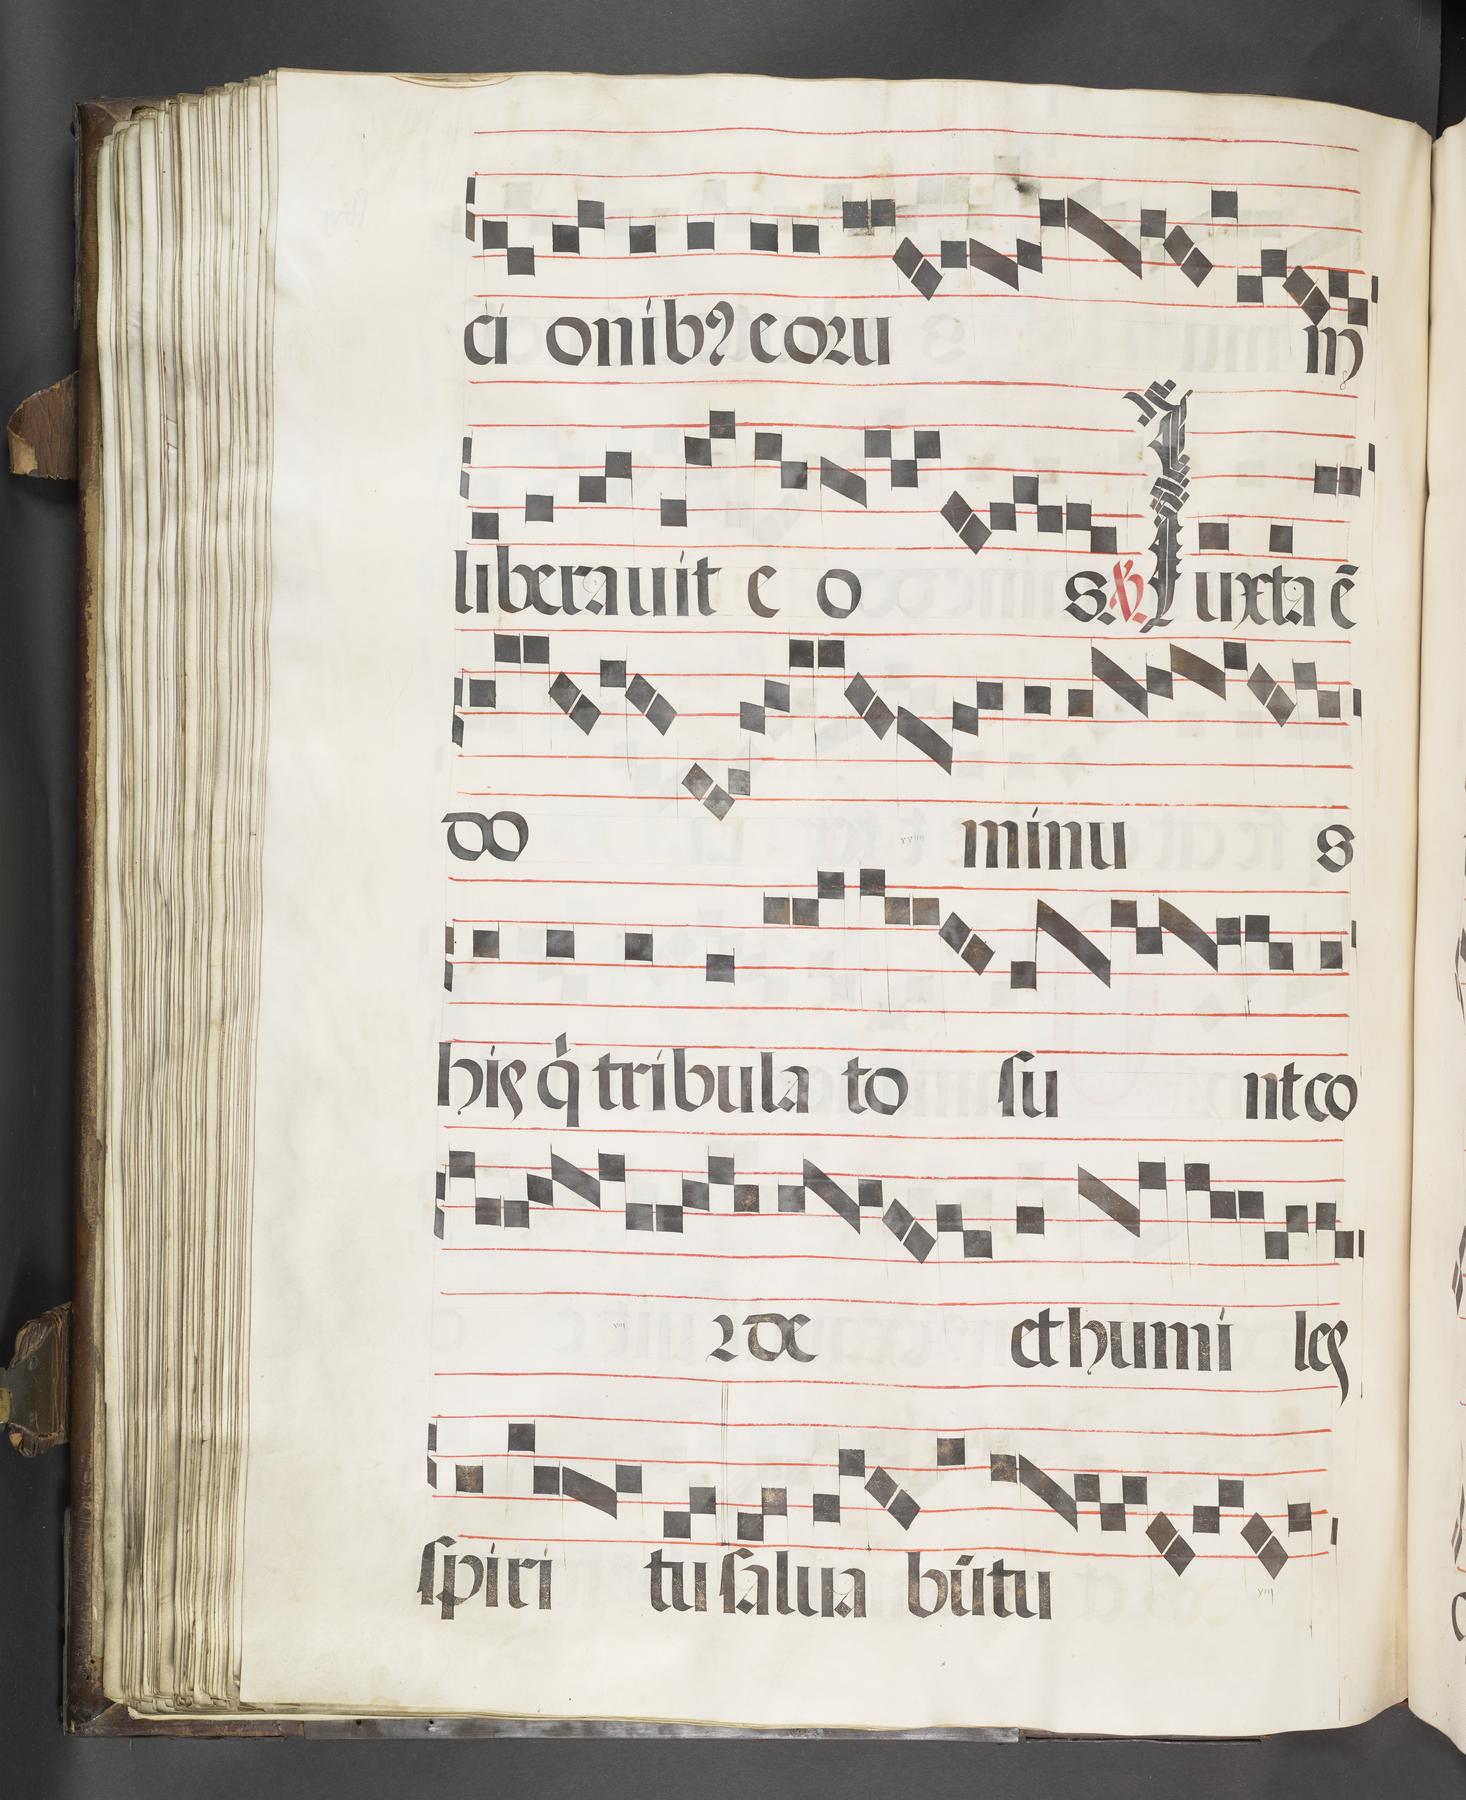 ci onibꝰ eoꝝu m
liberauit e o s ℣. Iuxta ē
do minu s
his q̇ tribula to su nt co
ꝛde et humi les
spiri tu salua būtu